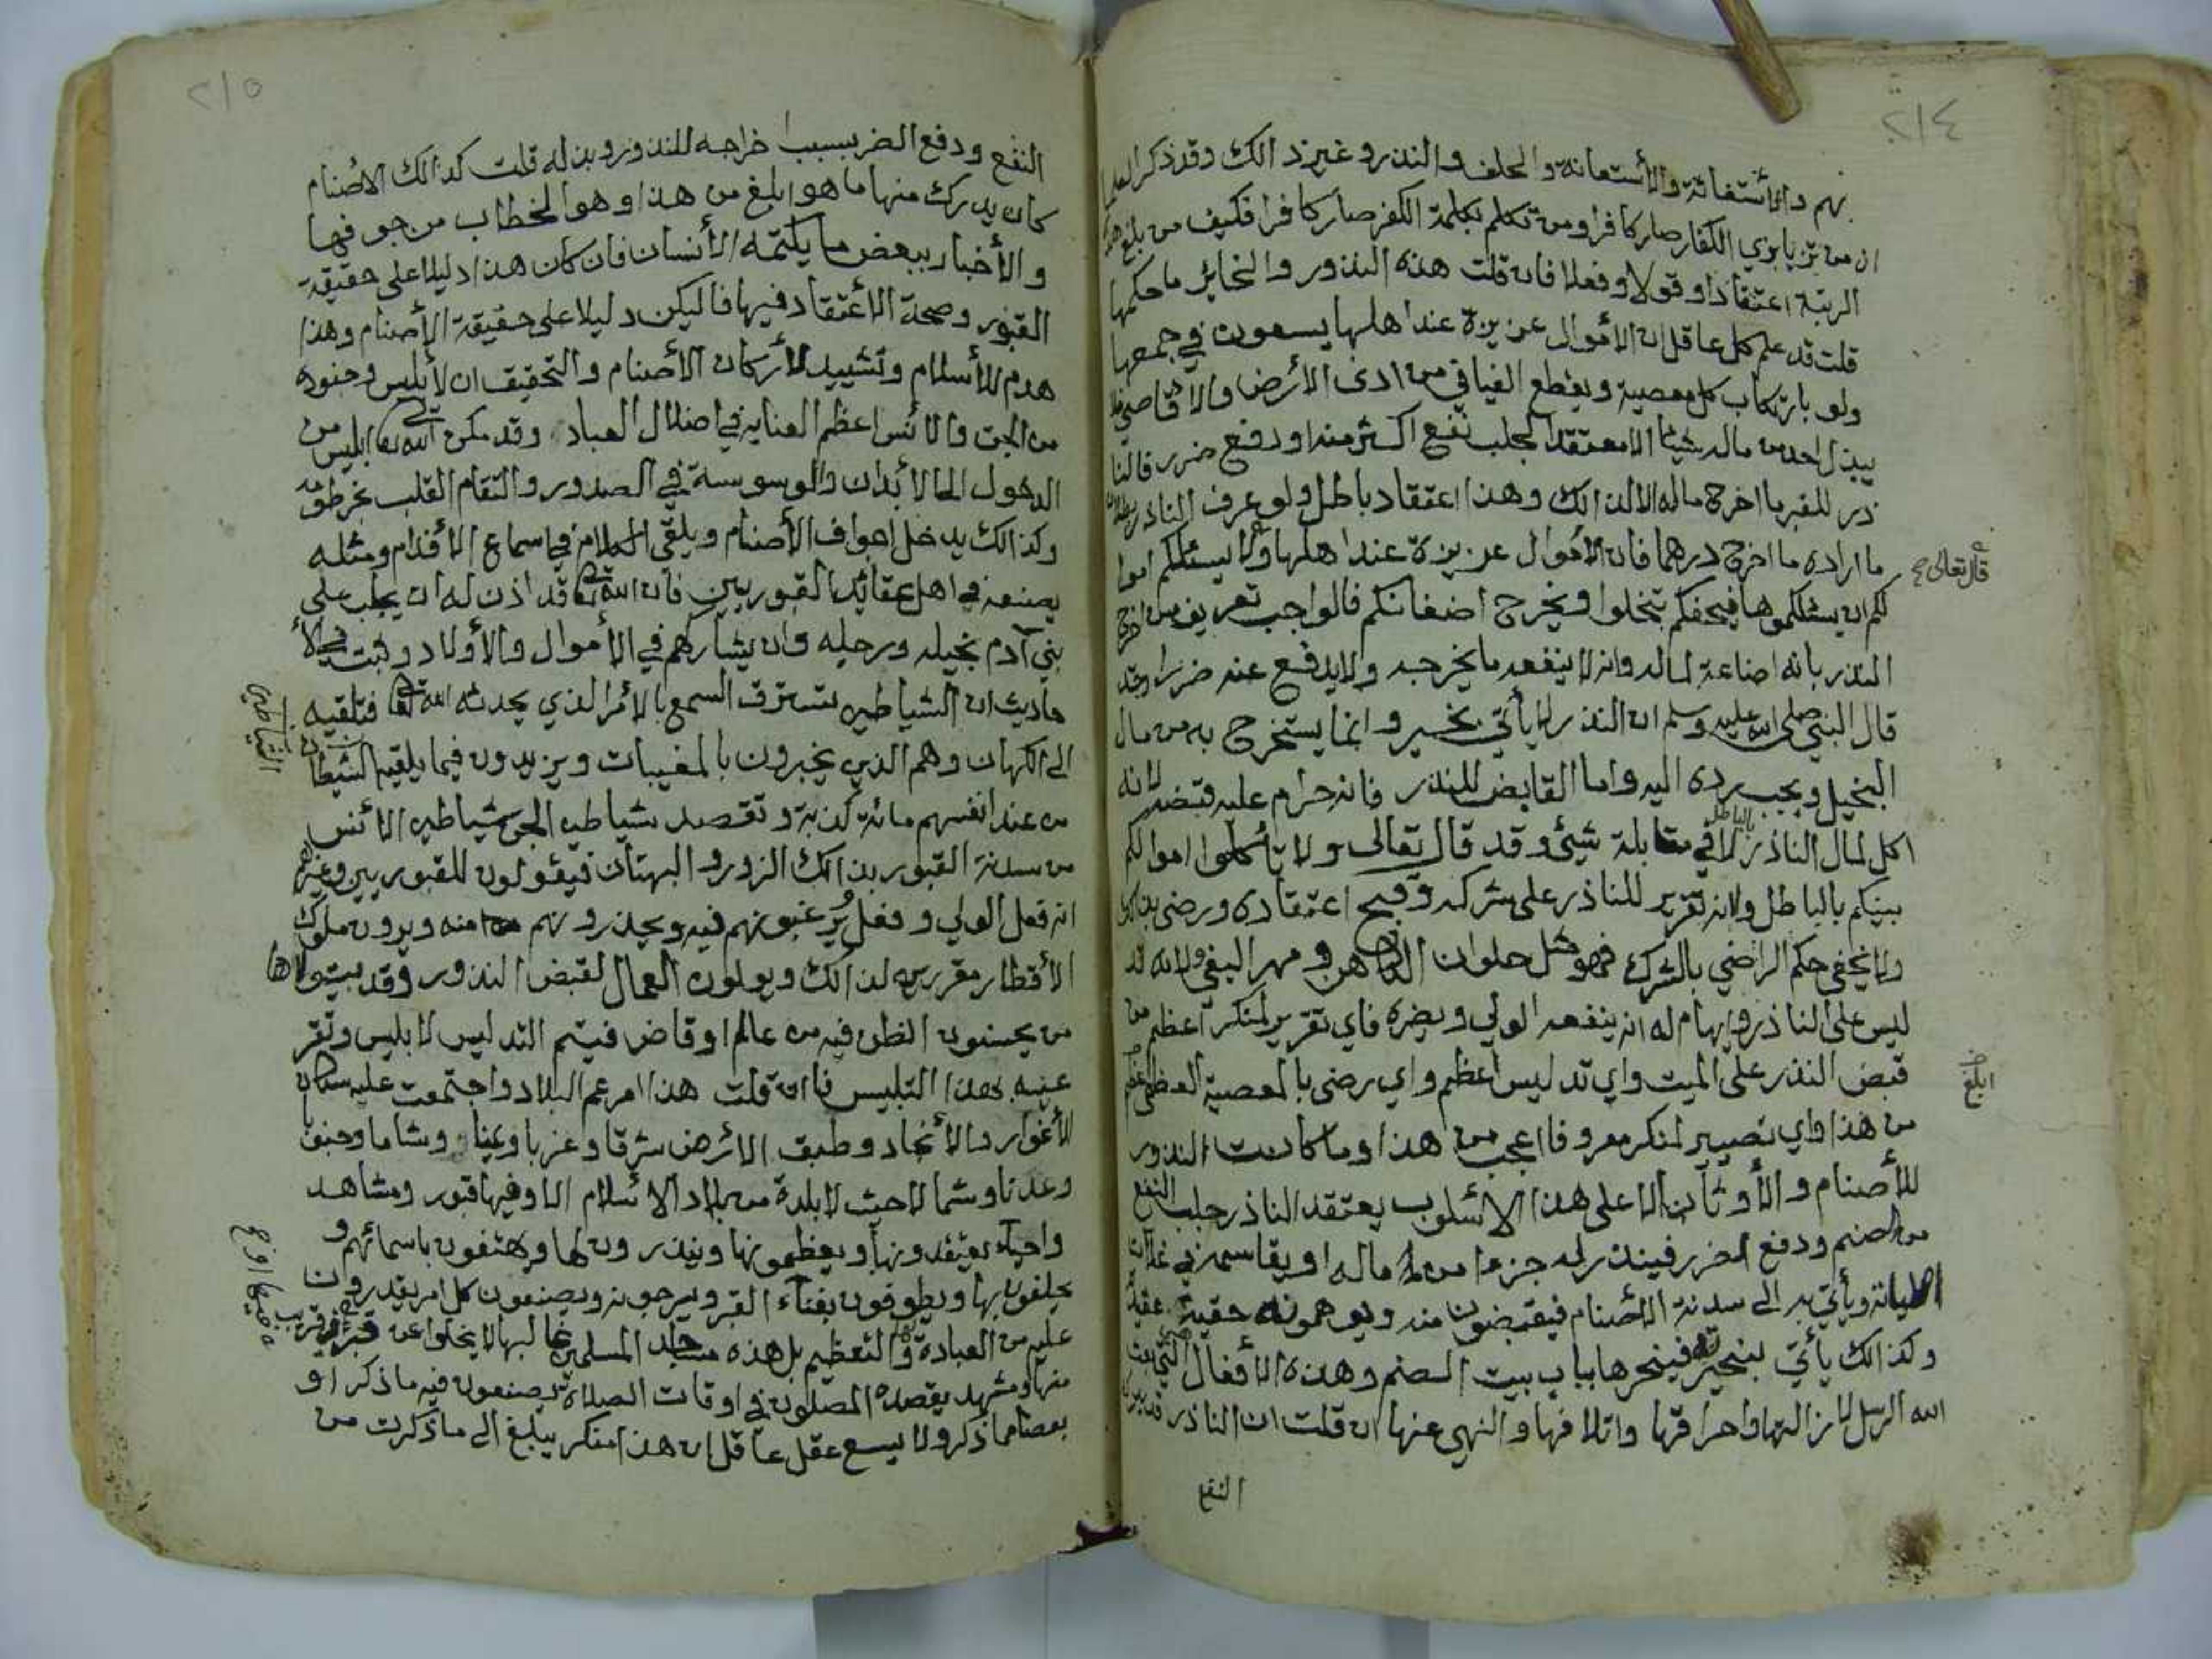 ٢١٤
بهم والأستغاثة والأستعانة والحلف والنذر وغير ذالك وقد ذكر العلما
ان من تزيا بزي الكفار صار كافرا ومن تكلم بكلمة الكفر صار كافرا فكيف من بلغ هذه
الرتبة اعتقادا وقولا وفعلا فان قلت هذه النذور والنحائر ما حكمها
قلت قد علم كل عاقل ان الأموال عزيزة عند اهلها يسعون في جمعها
ولو بارتكاب كل معصية ويقطع الفيافي من ادنى الأرض والاقاصي فلا
يبذل احد من ماله شيئا الا معتقدا لجلب نفع اكثر منه او دفع ضرر فالنا
ذر للقبر ما اخرج ماله الا لذالك وهذا اعتقاد باطل ولو عرف الناذر بطلان
ما اراده ما اخرج درهما فان الأموال عزيزة عند اهلها ولا يسئلكم اموا
قال تعالى
لكم ان يسئلكموها فيحفكم تبخلوا ويخرج اضغانكم فالواجب تعريف من اخرج
النذر بانه اضاعة لماله وانه لا ينفعه ما يخرجه ولا يدفع عنه ضررا وقد
قال النبي صلى الله عليه وسلم ان النذر لا يأتي بخير وانما يستخرج به من مال
البخيل ويجب رده اليه واما القابض للنذر فانه حرام عليه قبضه لانه
اكل لمال الناذر بالباطل لا في مقابلة شيئ وقد قال تعالى ولا تأكلوا اموالكم
بينكم بالباطل ولانه تقرير للناذر على شركه وقبح اعتقاده ورضى بذالك
ولا يخفى حكم الراضي بالشرك فهو مثل حلوان الكاهن ومهر البغي ولانه تد
ليس على الناذر وايهام له انه ينفعه الولي ويضره فاي تقرير لمنكر اعظم من
قبض النذر على الميت واي تدليس اعظم واي رضى بالمعصية العظمى
ابلغ
من هذا واي تصيير لمنكر معروفا اعجب من هذا وما كانت النذور
للأصنام والأوثان الا على هذا الأسلوب يعتقد الناذر جلب النفع
من الصنم ودفع الضرر فينذر له جزءا من ماله او يقاسمه في غلات
اطيانه ويأتي به الى سدنة الأصنام فيقبضون منه ويوهمونه حقية عقيد
وكذالك يأتي بنحيرته فينحرها بباب بيت الصنم وهذه الأفعال التي بعث
الله الرسل لازالتها واحراقها واتلافها والنهي عنها ان قلت ان الناذر قد يدرك
النفع
٢١٥
النفع ودفع الضر بسبب اخراجه للنذور وبذله قلت كذالك الأصنام
كان يدرك منها ما هو ابلغ من هذا وهو الخطاب من جوفها
والأخبار ببعض ما يكتمه الأنسان فان كان هذا دليلا على حقيقة
القبور وصحة الأعتقاد فيها فاليكن دليلا على حقيقة الأصنام وهذا
هدم للأسلام وتشييد لأركان الأصنام والتحقيق ان لأبليس وجنوده
من الجن والأنس اعظم العناية في اضلال العباد وقد مكن الله تعالى ابليس من
الدخول الى الأبدان والوسوسة في الصدور والتقام القلب بخرطومه
وكذالك يدخل اجواف الأصنام ويلقي الكلام في اسماع الأقدام ومثله
يصنعه في اهل عقائد القبوريين فان الله تعالى قد اذن له ان يجلب على
بني آدم بخيله ورجله وان يشاركهم في الأموال والأولاد وثبت في الأ
حاديث ان الشياطين تسترق السمع بالأمر الذي يحدثه الله تعالى فتلقيه
الشياطين
الى الكهان وهم الذين يخبرون بالمغيبات ويزيدون فيما يلقيه الشيطان
من عند انفسهم مائة كذبة وتقصد شياطين الجن شياطين الأنس
من سدنة القبور بذالك الزور والبهتان فيقولون للقبوريين وغيرهم
انه فعل الولي وفعل يرغبونهم فيه ويحذرونهم منه ويرون ملوك
الأقطار مقررين لذالك ويولون العمال لقبض النذور وقد يتولاها
من يحسنون الظن فيه من عالم او قاض فيتم التدليس لابليس وتقر
عينه بهذا التلبيس فان قلت هذا امر عم البلاد واجتمعت عليه سكان
الأغوار والأنجاد وطبق الأرض شرقا وغربا ويمنا وشاما وجنوبا
وعدنا وشمالا حيث لا بلدة من بلاد الاسلام الا وفيها قبور ومشاهد
واحياء يعتقدونها ويعظمونها وينذرون لها ويهتفون باسمائهم و
يحلفون بها ويطوفون بفناء القبر ويسرجونه ويصنعون كل امر يقدرون
عليه من العبادة والتعظيم بل هذه مساجد المسلمين غالبها لا يخلوا عن قبر او قريب
منها ومشهد يقصده المصلون في اوقات الصلاة يصنعون فيه ما ذكر او
بعض ما ذكر ولا يسع عقل عاقل ان هذا منكر يبلغ الى ما ذكرت من